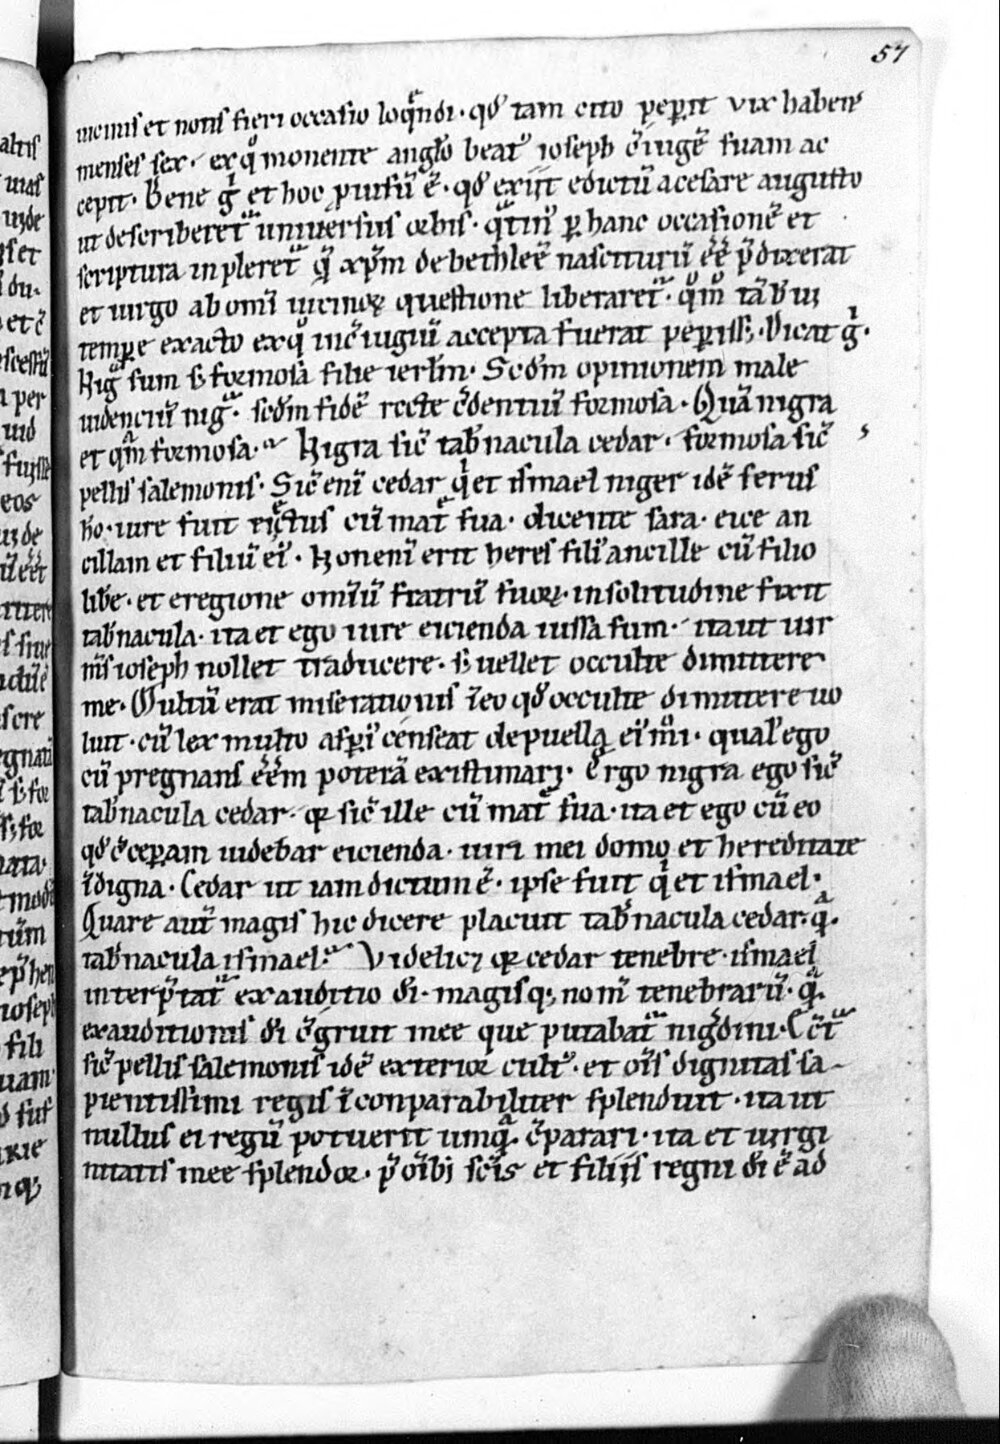 57
uicinis et notis fieri occasio loq̃ndi · qd̕ tam cito peꝑit vix habens
menses sex · ex qͦ monente angl̕o beatꝰ ioseph ↄ̃iugẽ suam ac
cepit. Bene gͥ et hoc ꝓuisũ ẽ · qd̕ exijt edictũ a cesare augusto
ut describeret᷑ uniuersus orbis · qͣtin᷒ ꝑ hanc occasionẽ et
scriptura inpleret᷑ q̃ xp̃m de bethleẽ nasciturũ eẽ p̃dixerat
et uirgo ab omi̅ uicinoꝝ questione liberaret᷑ · qͦm̊ tãb̕ uiꝫ
tempore exacto ex qͦ in ↄ̃iugiũ accepta fuerat peꝑissꝫ. Dicat gͥ.
Nigͣ sum sꝫ formosa filie ierl̕m. Scd̕m opinionem male
uidenciũ nigͣ · scd̕m fidẽ recte c̃dentiũ formosa. Quã nigra
et qͣm formosa. Nigra sic̃ tab̕nacula cedar · formosa sic̃
pellis salemonis. Sic̃ eni̅ cedar qͥ et ismael niger idẽ ferus
hõ · iure fuit eiectus cũ mat᷑ sua · dicente sara · eice an
cillam et filiũ ei᷒ · Non eni̅ erit heres fili᷒ ancille cũ filio
lib̕e · et e regione omi̅ũ fratrũ suoꝝ · in solitudine fixit
tab̕nacula · ita et ego iure eicienda iussa sum · ita ut uir
m̅s ioseph nollet traducere · sꝫ uellet occulte dimittere
me. Multũ erat miserationis i̅eo qd̕ occulte dimittere uo
luit · cũ lex multo asperi᷒ censeat de puella ei᷒mͦi · qual᷒ ego
cũ pregnans eẽm poterã existimari. Ergo nigra ego sic̃
tab̕nacula cedar · qꝛ sic̃ ille cũ mat᷑ sua · ita et ego cũ eo
qd̕ ↄ̃ceꝑam uidebar eicienda · uiri mei domo et hereditate
i̅digna. Cedar ut iam dictum ẽ · ipse fuit qͥ et ismael.
Quare aut̃ magis hic dicere placuit tab̕nacula cedar · qͣ̃.
tab̕nacula ismael. Videlicꝫ qꝛ cedar tenebre · ismael
interp̃tat᷑ exauditio di̅ · magisqꝫ nom̅ tenebrarũ · qͣ̃.
exauditionis di̅ ↄ̃gruit mee que putabat᷑ nigͣdini. Cet᷑
sic̃ pellis salemonis idẽ exterior cult᷒ · et oi̅s dignitas sa-
pientissimi regis i̅conparabiliter splenduit · ita ut
nullus ei regũ potuerit umqͣ̃ · ↄ̃parari · ita et uirgi
nitatis mee splendor · p̃ oi̅bꝫ sc̃is et filijs regni di̅ ẽ ad